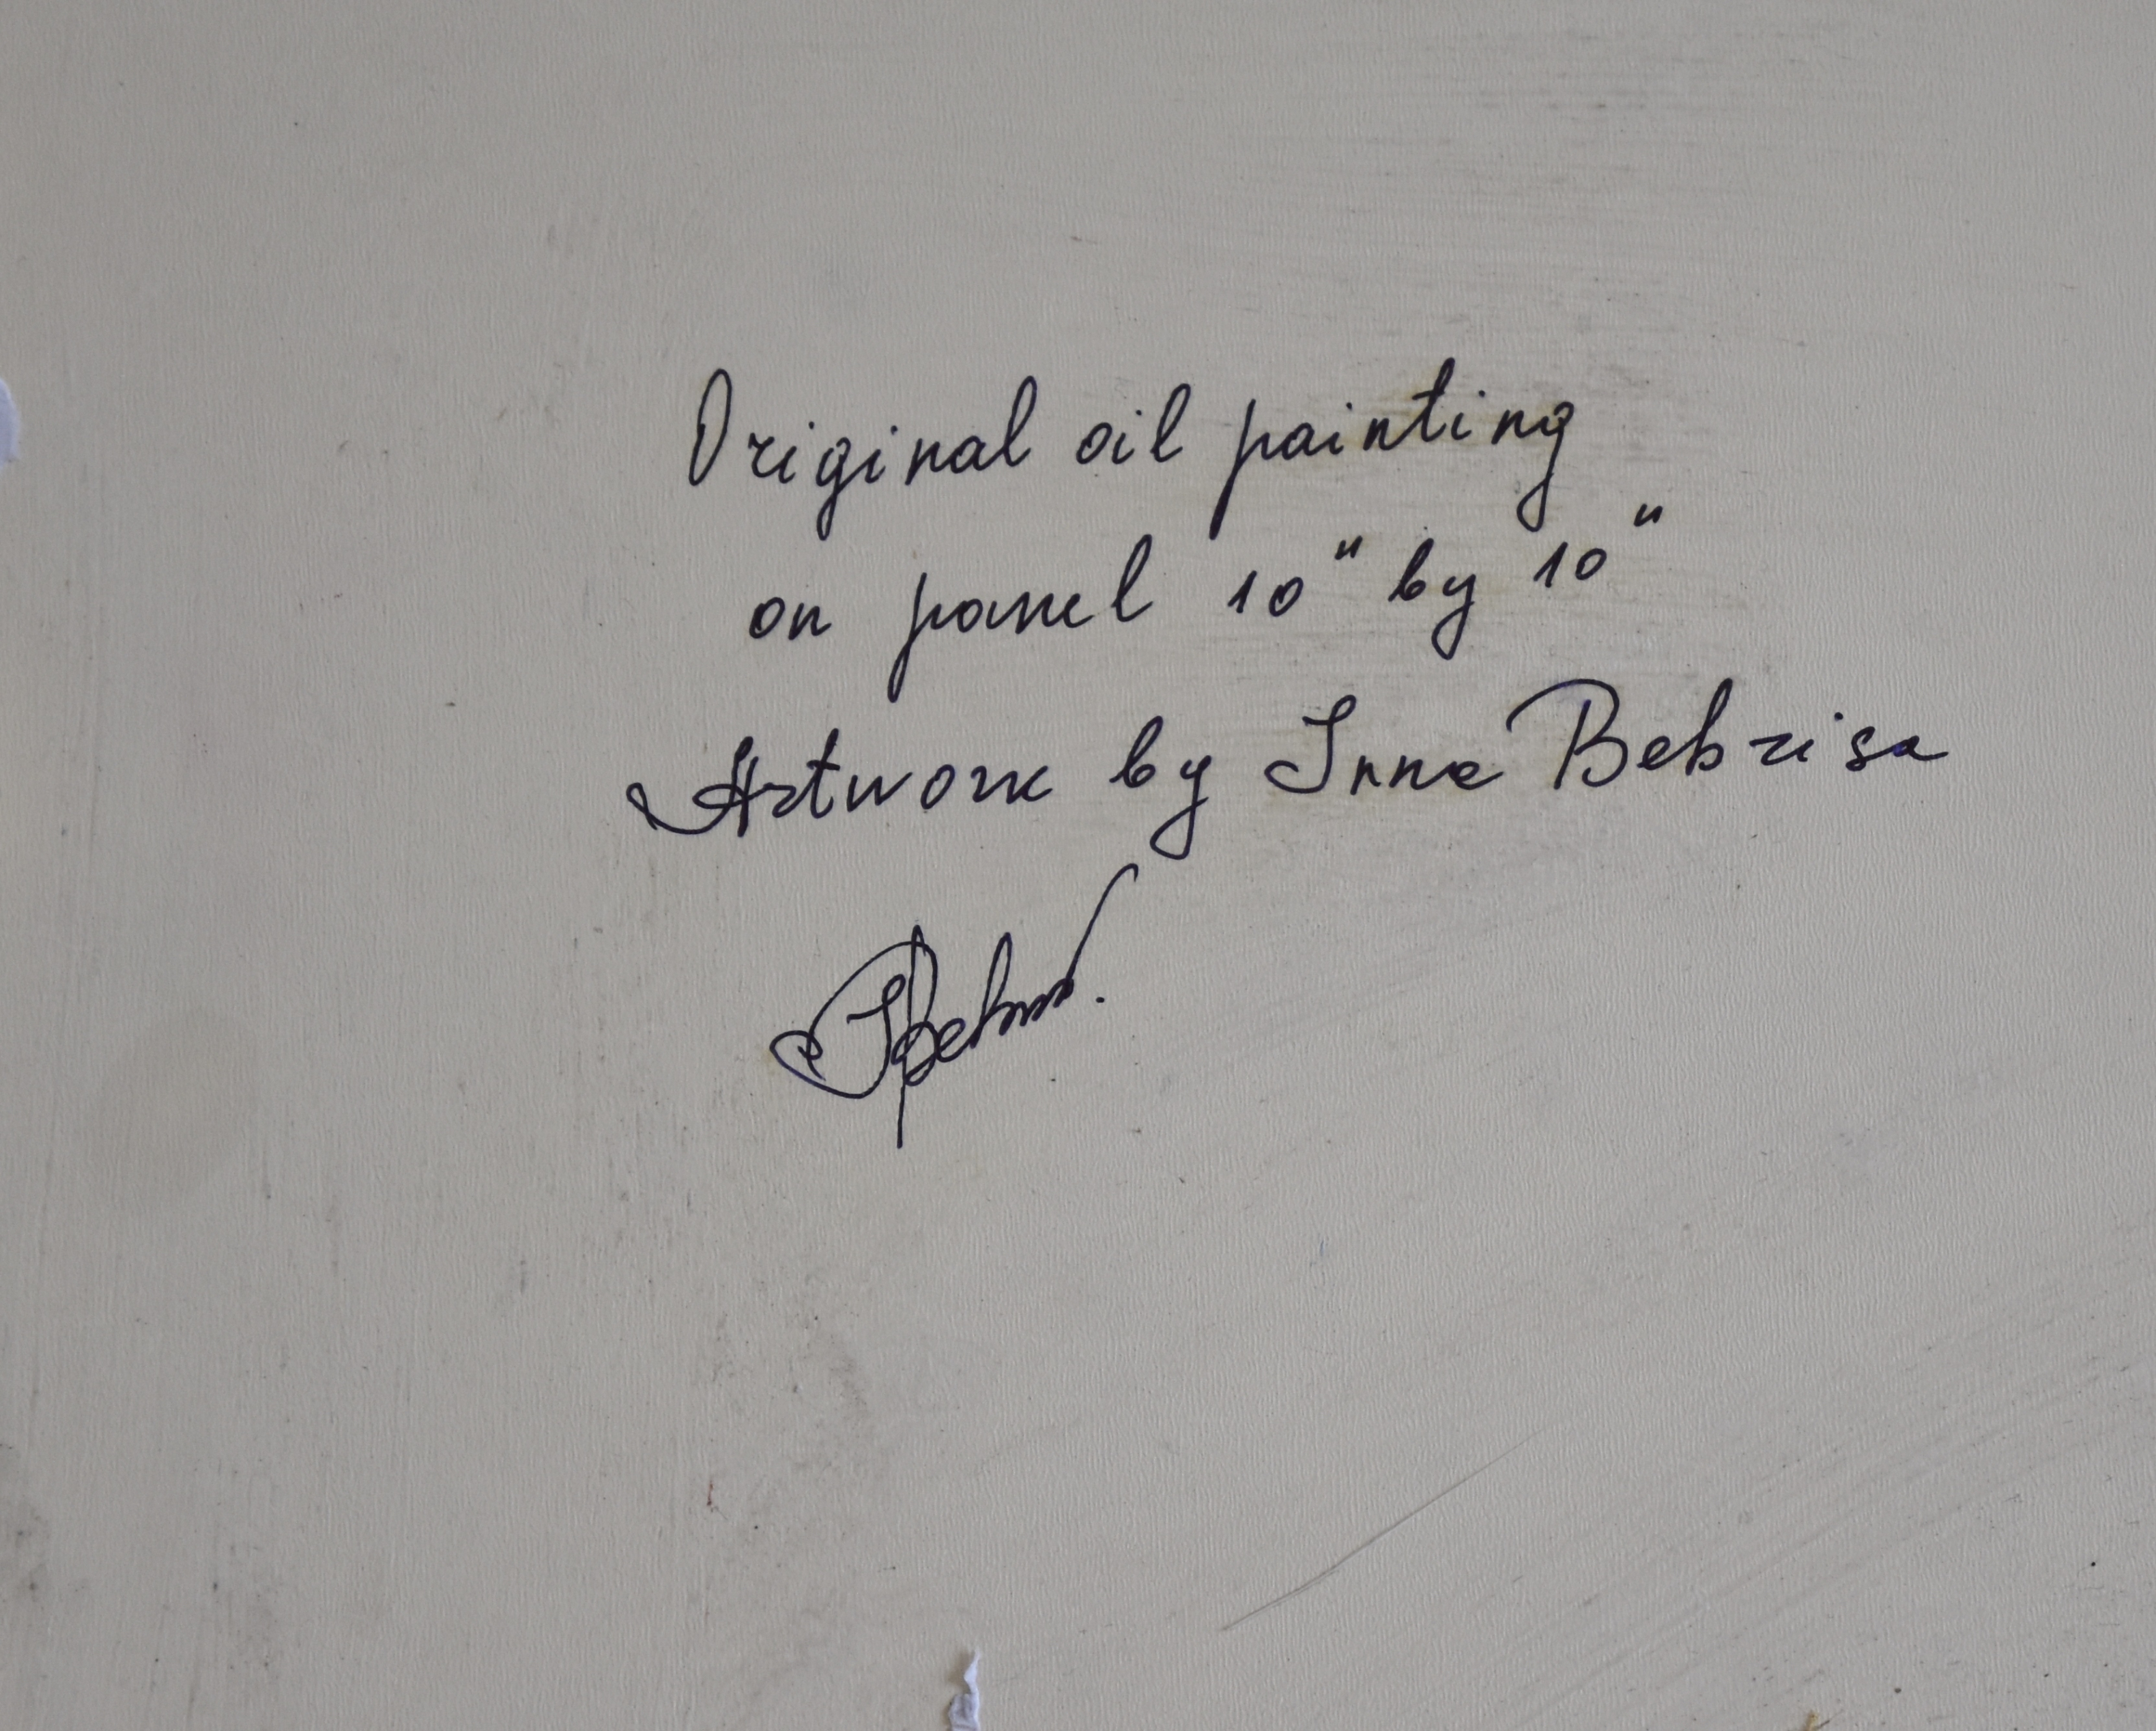 Original oil painting
on panel 10" by 10"
Artwork by Inna Bebrisa